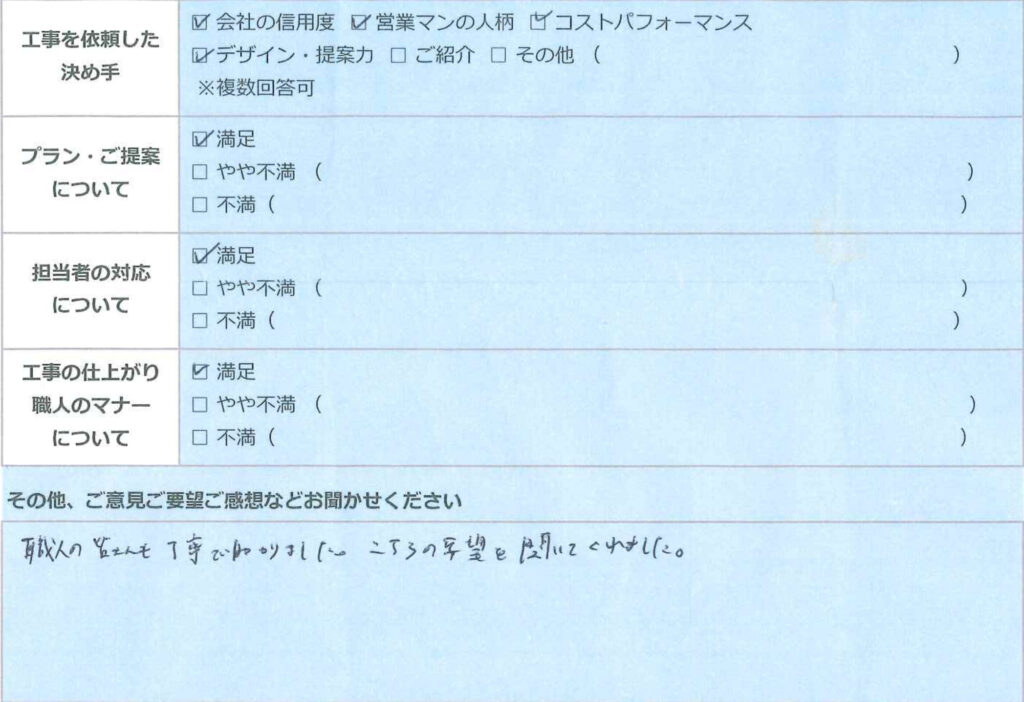 工事を依頼した
決め手
☑ 会社の信用度 ☑ 営業マンの人柄 ☑ コストパフォーマンス
☑ デザイン・提案力 □ ご紹介 □ その他 ( )
※複数回答可
プラン・ご提案
について
☑ 満足
□ やや不満 ( )
□ 不満 ( )
担当者の対応
について
☑ 満足
□ やや不満 ( )
□ 不満 ( )
工事の仕上がり
職人のマナー
について
☑ 満足
□ やや不満 ( )
□ 不満 ( )
その他、ご意見ご要望ご感想などお聞かせください
職人の皆さんも丁寧で助かりました。こちらの要望を聞いてくれました。